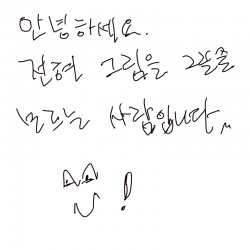 안녕하세요.
전혀 그림을 그릴줄
모르는 사람입니다.
!